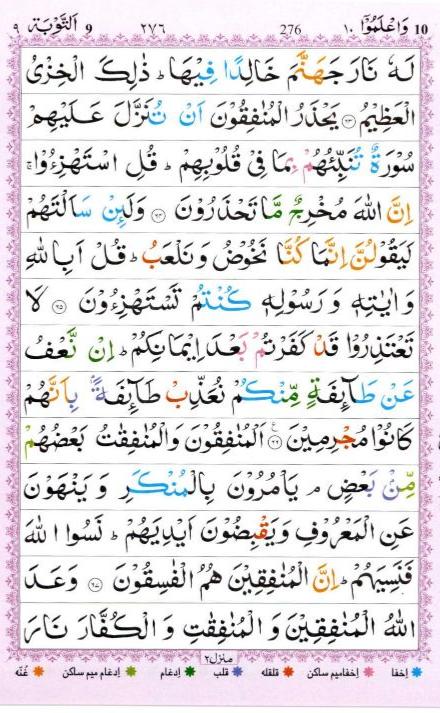 10 وَاعْلَمُوْۤا ١٠ 276 ٢٧٦ 9 اَلتَّوْبَة ٩
لَهٗ نَارَ جَهَنَّمَ خَالِدًا فِيْهَا ؕ ذٰلِكَ الْخِزْىُ
الْعَظِيْمُ ﴿۶۳﴾ يَحْذَرُ الْمُنٰفِقُوْنَ اَنْ تُنَزَّلَ عَلَيْهِمْ
سُوْرَةٌ تُنَبِّئُهُمْ بِمَا فِىْ قُلُوْبِهِمْ ؕ قُلِ اسْتَهْزِءُوْا ۚ
اِنَّ اللّٰهَ مُخْرِجٌ مَّا تَحْذَرُوْنَ ﴿۶۴﴾ وَلَئِنْ سَاَلْتَهُمْ
لَيَقُوْلُنَّ اِنَّمَا كُنَّا نَخُوْضُ وَ نَلْعَبُ ؕ قُلْ اَبِاللّٰهِ
وَ اٰيٰتِهٖ وَ رَسُوْلِهٖ كُنْتُمْ تَسْتَهْزِءُوْنَ ﴿۶۵﴾ لَا
تَعْتَذِرُوْا قَدْ كَفَرْتُمْ بَعْدَ اِيْمَانِكُمْ ؕ اِنْ نَّعْفُ
عَنْ طَآئِفَةٍ مِّنْكُمْ نُعَذِّبْ طَآئِفَةًۢ بِاَنَّهُمْ
كَانُوْا مُجْرِمِيْنَ ﴿۶۶﴾ اَلْمُنٰفِقُوْنَ وَالْمُنٰفِقٰتُ بَعْضُهُمْ
مِّنْۢ بَعْضٍ ۘ يَاْمُرُوْنَ بِالْمُنْكَرِ وَ يَنْهَوْنَ
عَنِ الْمَعْرُوْفِ وَ يَقْبِضُوْنَ اَيْدِيَهُمْ ؕ نَسُوا اللّٰهَ
فَنَسِيَهُمْ ؕ اِنَّ الْمُنٰفِقِيْنَ هُمُ الْفٰسِقُوْنَ ﴿۶۷﴾ وَعَدَ
اللّٰهُ الْمُنٰفِقِيْنَ وَ الْمُنٰفِقٰتِ وَ الْكُفَّارَ نَارَ
منزل٢
اخفا اخفامیم ساکن قلقله قلب ادغام ادغام میم ساکن غُنّه